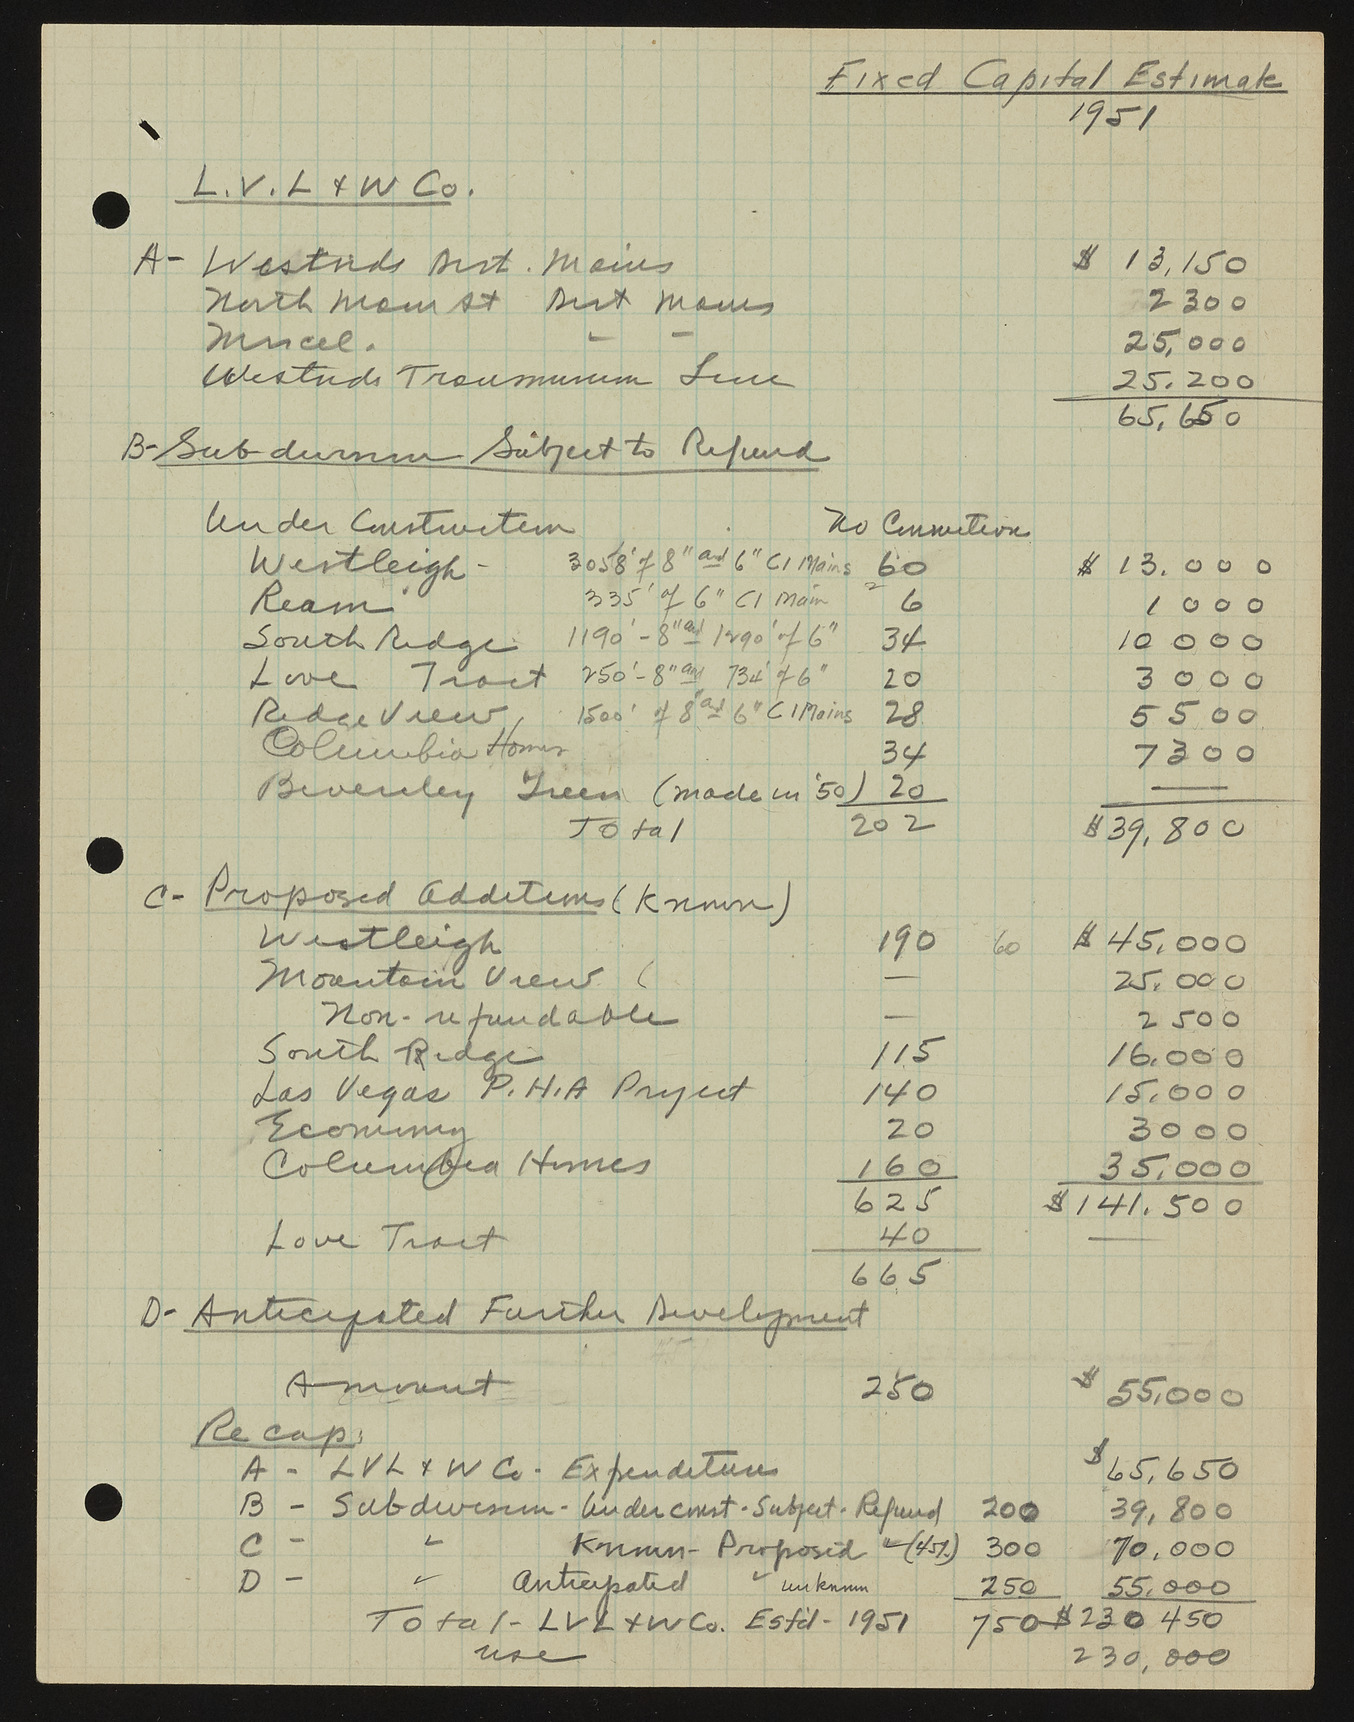 Fixed Capital Estimate
1951
L.V.L & W Co.
A- Westside Dist. Mains $ 13,150
North Main St Dist Mains 2300
Miscel. " " 25,000
Westside Transmission Line 25,200
65,650
B- Sub-division Subject to Refund
Under Construction No Connections
Westleigh - 3058' of 8" and 6" CI Mains 60 $ 13.000
Ream 335' of 6" CI Main 6 1000
South Ridge 1190' - 8" and 1290' of 6" 34 10 000
Love Tract 250' - 8" and 734' of 6" 20 3000
Ridge View, 1500' of 8" and 6" CI Mains 28 5500
Columbia Homes 34 7300
Beverley Green (made in '50) 20 —
Total 202 $39,800
C- Proposed Additions (Known)
Westleigh 190 60 $ 45,000
Mountain View ( — 25,000
Non-refundable — 2500
South Ridge 115 16,000
Las Vegas P.H.A Project 140 15,000
Economy 20 3000
Columbia Homes 160 35,000
625 $141,500
Love Tract 40 —
665
D- Anticipated Further Development
Amount 250 $ 55,000
Recap:
A - LVL & W Co. Expenditures $65,650
B - Subdivision - Under const - Subject - Refund 200 39,800
C - " Known - Proposed " (45%) 300 70,000
D - " Anticipated " unknown 250 55,000
Total - LVL & W Co. Est'd - 1951 750 $230 450
use 230,000